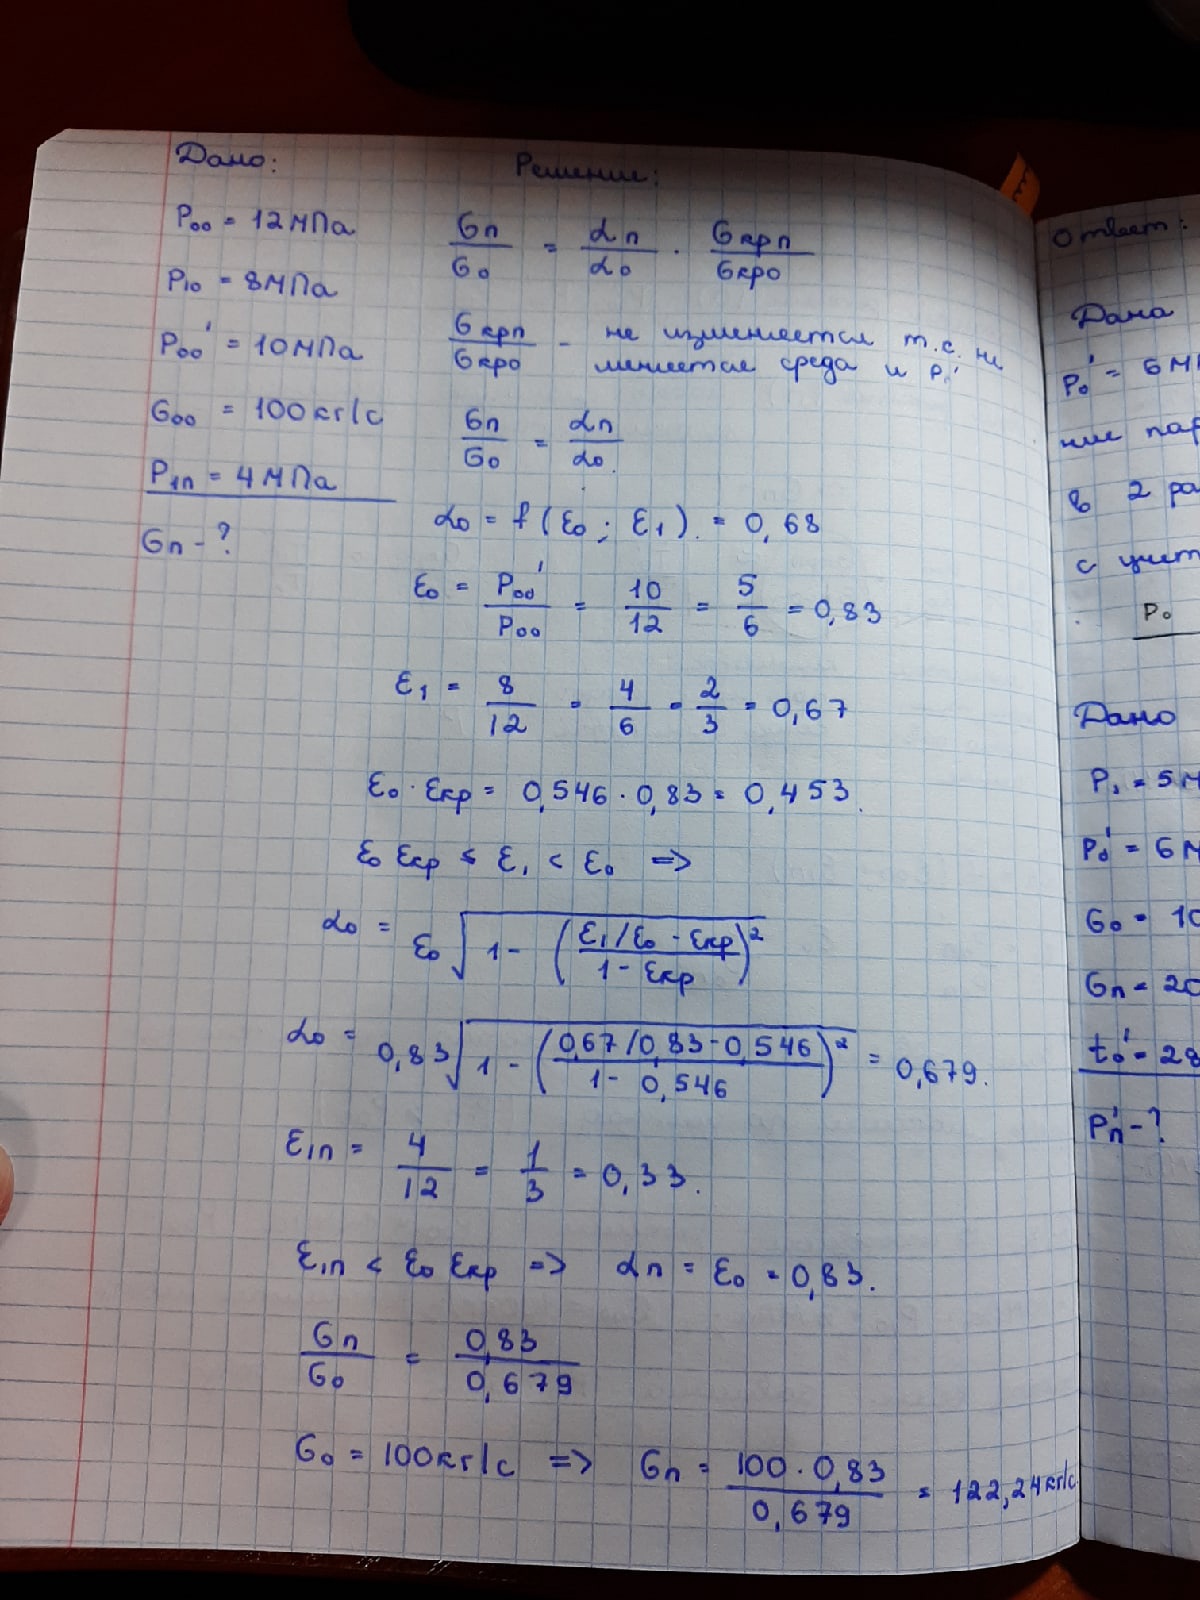 Дано:
Решение:
P₀₀ = 12 МПа
P₁₀ = 8 МПа
P₀₀' = 10 МПа
G₀₀ = 100 кг/с
P₁п = 4 МПа
Gп - ?
Gп/G₀ = αп/α₀ · Gкрп/Gкр0
Gкрп/Gкр0 - не изменяется т.с. не
меняется среда и P₀'
Gп/G₀ = αп/α₀.
α₀ = f(ε₀; ε₁) = 0,68
ε₀ = P₀₀'/P₀₀ = 10/12 = 5/6 = 0,83
ε₁ = 8/12 = 4/6 = 2/3 = 0,67
ε₀ · εкр = 0,546 · 0,83 = 0,453.
ε₀ εкр ≤ ε₁ < ε₀ =>
α₀ = ε₀ √(1 - ((ε₁/ε₀ - εкр)/(1 - εкр))²)
α₀ = 0,83 √(1 - ((0,67/0,83 - 0,546)/(1 - 0,546))²) = 0,679.
ε₁п = 4/12 = 1/3 = 0,33.
ε₁п < ε₀ εкр => αп = ε₀ = 0,83.
Gп/G₀ = 0,83/0,679
G₀ = 100 кг/с => Gп = 100 · 0,83/0,679 = 122,24 кг/с
Ответ:
Дана
P₀' = 6 М
ние пар
в 2 ра
с учет
P₀
Дано
P₁ = 5 М
P₀' = 6 М
G₀ = 10
Gп = 20
t₀' = 28
Pп' - ?